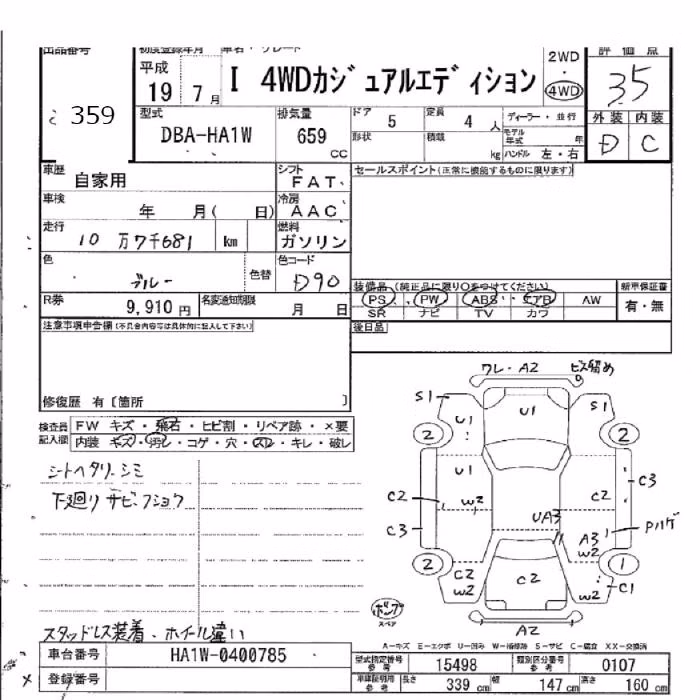 出品番号 359
初度登録年月 平成 19 7月
車名・グレード I 4WDカジュアルエディション
2WD・4WD
評価点 35
型式 DBA-HA1W
排気量 659 CC
ドア 5 定員 4人
形状 積載 kg
ディーラー・並行
モデル年式 年
ハンドル 左・右
外装 内装
D C
車歴 自家用
シフト FAT
セールスポイント(正常に機能するものに限ります)
車検 年 月( 日)
冷房 AAC
走行 10万7千681 km
燃料 ガソリン
色 ブルー 色替
色コード D90
装備品(純正品に限り○をつけてください)
新車保証書 有・無
PS PW ABS エアB AW
SR ナビ TV カワ
R券 9,910円
名変通知期限 月 日
後日品
注意事項申告欄(不具合内容等は具体的に記入して下さい)
修復歴 有〔箇所 〕
検査員記入欄
FW キズ・飛石・ヒビ割・リペア跡・×要
内装 キズ・汚レ・コゲ・穴・スレ・キレ・破レ
シートヘタリ.シミ
下廻リ サビ.フショク
スタッドレス装着.ホイール違い
ワレ・A2 ビス留め
S1 U1 U1 S1
2 2
U1 C3
C2 W2 C2
UA3
C3 A3 W2 Pハゲ
2 1
C2 W2 C2 W2 C1
A2
スペア
A-キズ E-エクボ U-凹み W-補修跡 S-サビ C-腐食 XX-交換済
車台番号 HA1W-0400785
登録番号
型式指定番号参考 15498 類別区分番号参考 0107
車庫証明用参考 長さ 339cm 幅 147cm 高さ 160cm